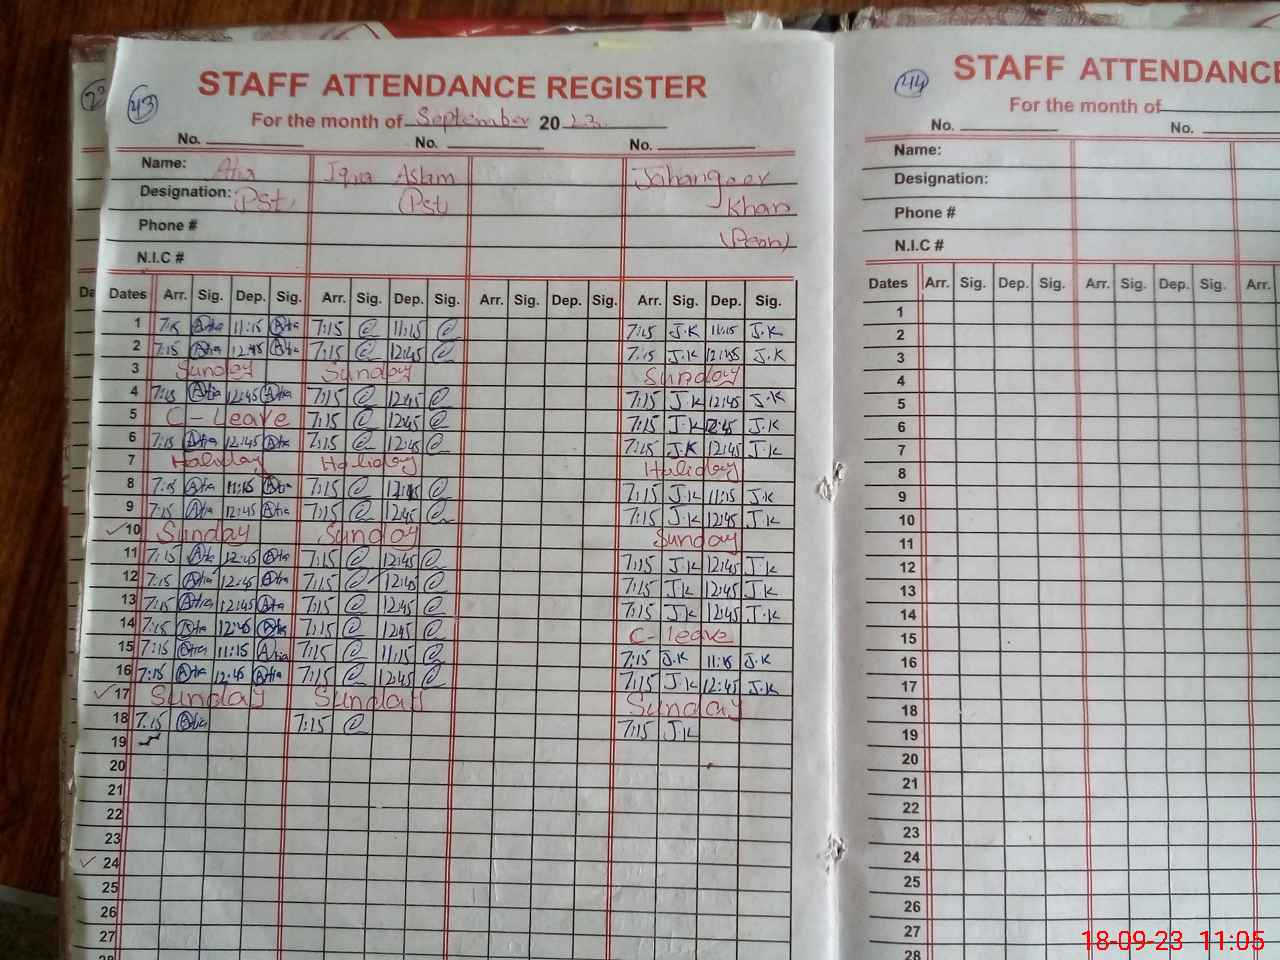 43
STAFF ATTENDANCE REGISTER
For the month of September 20 23
No. No. No.
Name: Atia Iqra Aslam Jahangeer
Designation: (Pst) (Pst) Khan
Phone # (Peon)
N.I.C #
Dates Arr. Sig. Dep. Sig. Arr. Sig. Dep. Sig. Arr. Sig. Dep. Sig. Arr. Sig. Dep. Sig.
1 7:15 Atia 11:15 Atia 7:15 @ 11:15 @ 7:15 J.K 11:15 J.K
2 7:15 Atia 12:45 Atia 7:15 @ 12:45 @ 7:15 J.K 12:45 J.K
3 Sunday Sunday Sunday
4 7:15 Atia 12:45 Atia 7:15 @ 12:45 @ 7:15 J.K 12:45 J.K
5 C-Leave 7:15 @ 12:45 @ 7:15 J.K 12:45 J.K
6 7:15 Atia 12:45 Atia 7:15 @ 12:45 @ 7:15 J.K 12:45 J.K
7 Holiday Holiday Holiday
8 7:15 Atia 11:15 Atia 7:15 @ @ 7:15 J.K 11:15 J.K
9 7:15 Atia 12:45 Atia 7:15 @ 12:45 @ 7:15 J.K 12:45 J.K
10 Sunday Sunday Sunday
11 7:15 Atia 12:45 Atia 7:15 @ 12:45 @ 7:15 J.K 12:45 J.K
12 7:15 Atia 12:45 Atia 7:15 @ 12:45 @ 7:15 J.K 12:45 J.K
13 7:15 Atia 12:45 Atia 7:15 @ 12:45 @ 7:15 J.K 12:45 J.K
14 7:15 Atia 12:45 Atia 7:15 @ 12:45 @ C-leave
15 7:15 Atia 11:15 Atia 7:15 @ 11:15 @ 7:15 J.K 11:15 J.K
16 7:15 Atia 12:45 Atia 7:15 @ 12:45 @ 7:15 J.K 12:45 J.K
17 Sunday Sunday Sunday
18 7:15 Atia 7:15 @ 7:15 J.K
19
20
21
22
23
24
25
26
27
28
44
STAFF ATTENDANCE
For the month of
No. No.
Name:
Designation:
Phone #
N.I.C #
Dates Arr. Sig. Dep. Sig. Arr. Sig. Dep. Sig. Arr.
1
2
3
4
5
6
7
8
9
10
11
12
13
14
15
16
17
18
19
20
21
22
23
24
25
26
27
28
18-09-23 11:05